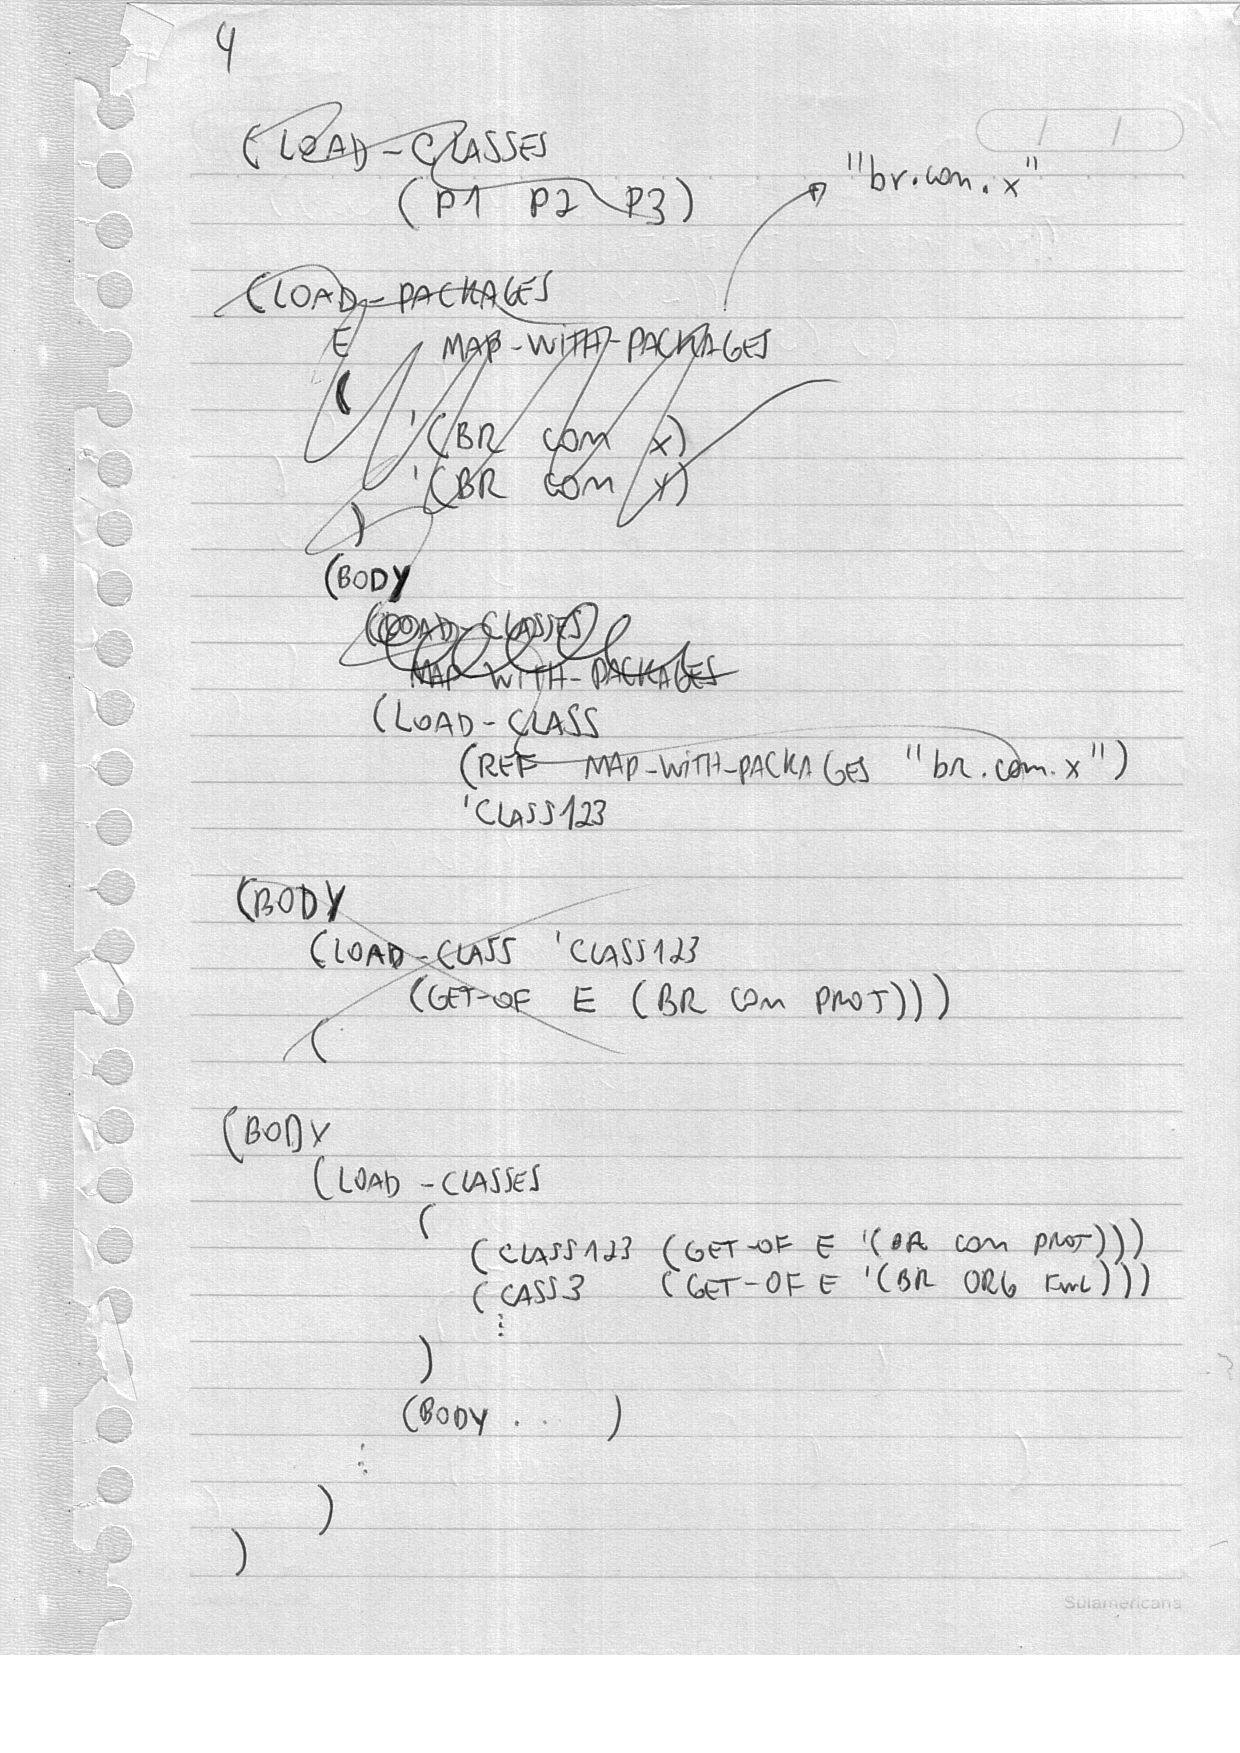 4
(LOAD-CLASSES
(P1 P2 P3)
"br.com.x"
(LOAD-PACKAGES
E MAP-WITH-PACKAGES
(
'(BR COM X)
'(BR COM Y)
)
(BODY
(LOAD-CLASSES
MAP-WITH-PACKAGES
(LOAD-CLASS
(REF MAP-WITH-PACKAGES "br.com.x")
'CLASS123
(BODY
(LOAD-CLASS 'CLASS123
(GET-OF E (BR COM PROT)))
(
(BODY
(LOAD-CLASSES
(
(CLASS123 (GET-OF E '(BR COM PROT)))
(CASS3 (GET-OF E '(BR ORG )))
⋮
)
(BODY . . )
⋮
)
)
Sulamericana